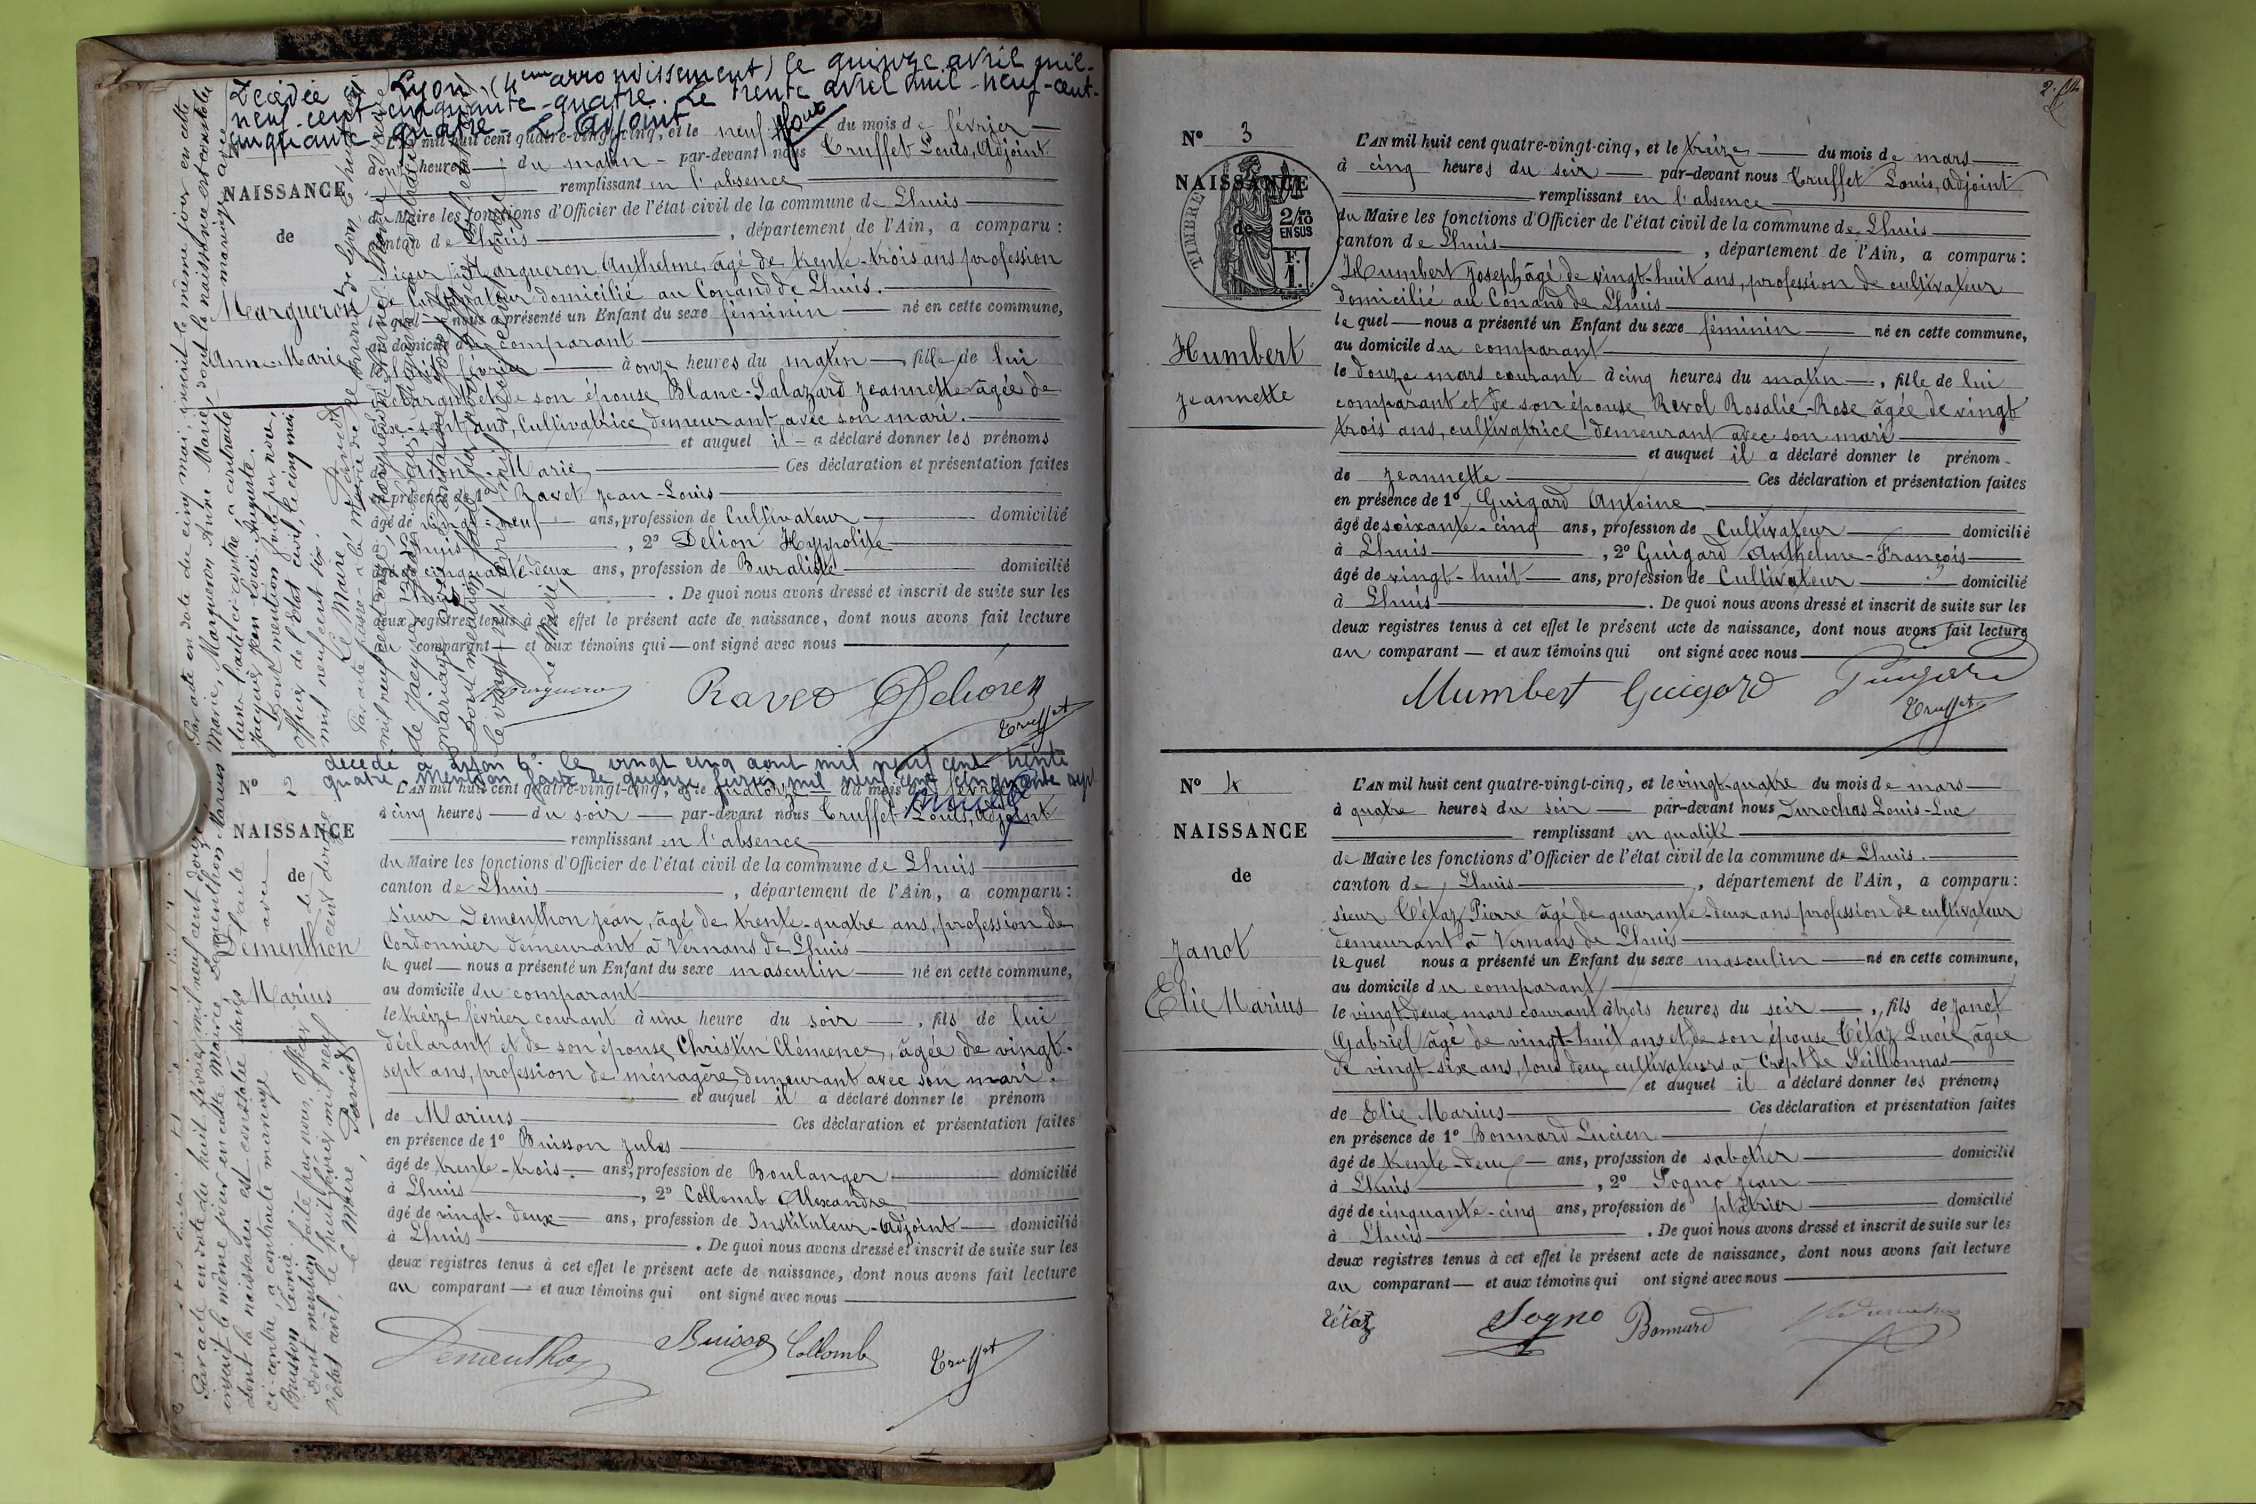 Décédée à Lyon (4eme arrondissement) le quinze avril mil-
neuf-cent-cinquante-quatre. Le trente avril mil-neuf-cent-
cinquante-quatre. L'Adjoint
L'AN mil huit cent quatre-vingt-cinq, et le neuf du mois de février
heures du matin par-devant nous Truffet Louis, Adjoint
NAISSANCE
remplissant en l'absence
du Maire les fonctions d'Officier de l'état civil de la commune de Lhuis
de
canton de Lhuis, département de l'Ain, a comparu :
sieur Margueron Anthelme, âgé de trente-trois ans profession
Margueron
de Cultivateur domicilié au Conand de Lhuis.
lequel nous a présenté un Enfant du sexe féminin né en cette commune,
Anne-Marie
au domicile du comparant
février à onze heures du matin, fille de lui
déclarant et de son épouse Blanc-Salazard Jeannette âgée de
ans, Cultivatrice demeurant avec son mari.
et auquel il a déclaré donner les prénoms
Marie Ces déclaration et présentation faites
en présence de 1º Ravet Jean-Louis
âgé de vingt-neuf ans, profession de Cultivateur domicilié
à Lhuis, 2º Delion Hyppolite
âgé de cinquante-deux ans, profession de Buraliste domicilié
à Lhuis. De quoi nous avons dressé et inscrit de suite sur les
deux registres tenus à cet effet le présent acte de naissance, dont nous avons fait lecture
au comparant et aux témoins qui ont signé avec nous
Margueron Ravet Delion
Truffet
Par acte en date du cinq mai, inscrit le même jour en cette
Mairie, Margueron Anne Marie, dont la naissance est constatée
dans l'acte ci-contre, a contracté mariage avec
Jacquier Jean-Louis Auguste.
Dont mention faite par nous,
officier de l'état civil, le cinq mai
mil neuf cent six.
Le Maire,
décédé à Lyon 6º. le vingt cinq aout mil neuf cent trente
quatre Mention faite le quinze février mil neuf cent cinquante sept
Nº 2
L'AN mil huit cent quatre-vingt-cinq, et le quatorze du mois de février
à cinq heures du soir par-devant nous Truffet Louis, Adjoint
NAISSANCE
remplissant en l'absence
du Maire les fonctions d'Officier de l'état civil de la commune de Lhuis
de
canton de Lhuis, département de l'Ain, a comparu :
sieur Dementhon Jean, âgé de trente-quatre ans, profession de
Dementhon
Cordonnier demeurant à Vernans de Lhuis
lequel nous a présenté un Enfant du sexe masculin né en cette commune,
Marius
au domicile du comparant
le treize février courant à une heure du soir, fils de lui
déclarant et de son épouse Christin Clémence, âgée de vingt-
sept ans, profession de ménagère demeurant avec son mari.
et auquel il a déclaré donner le prénom
de Marius Ces déclaration et présentation faites
en présence de 1º Buisson Jules
âgé de trente-trois ans, profession de Boulanger domicilié
à Lhuis, 2º Collomb Alexandre
âgé de vingt-deux ans, profession de Instituteur-Adjoint domicilié
à Lhuis. De quoi nous avons dressé et inscrit de suite sur les
deux registres tenus à cet effet le présent acte de naissance, dont nous avons fait lecture
au comparant et aux témoins qui ont signé avec nous
Dementhon Buisson Collomb Truffet
Par acte en date du huit février mil neuf cent douze
inscrit le même jour en cette Mairie, Dementhon Marius
dont la naissance est constatée dans l'acte
ci-contre, a contracté mariage avec
Buisson
Dont mention faite par nous, officier de
l'état civil, le huit février mil neuf cent douze
le Maire,
2
Nº 3
L'AN mil huit cent quatre-vingt-cinq, et le treize du mois de mars
à cinq heures du soir par-devant nous Truffet Louis, adjoint
NAISSANCE
remplissant en l'absence
TIMBRE
2/10 EN SUS
F. 1.
du Maire les fonctions d'Officier de l'état civil de la commune de Lhuis
de
canton de Lhuis, département de l'Ain, a comparu :
Humbert Joseph, âgé de vingt-huit ans, profession de cultivateur
domicilié au Conand de Lhuis
lequel nous a présenté un Enfant du sexe féminin né en cette commune,
Humbert
au domicile du comparant
le douze mars courant à cinq heures du matin, fille de lui
Jeannette
comparant et de son épouse Revol Rosalie-Rose âgée de vingt
trois ans, cultivatrice demeurant avec son mari
et auquel il a déclaré donner le prénom
de Jeannette Ces déclaration et présentation faites
en présence de 1º Guigard Antoine
âgé de soixante-cinq ans, profession de Cultivateur domicilié
à Lhuis, 2º Guigard Anthelme-François
âgé de vingt-huit ans, profession de Cultivateur domicilié
à Lhuis. De quoi nous avons dressé et inscrit de suite sur les
deux registres tenus à cet effet le présent acte de naissance, dont nous avons fait lecture
au comparant et aux témoins qui ont signé avec nous
Humbert Guigard Guigard
Truffet
Nº 4
L'AN mil huit cent quatre-vingt-cinq, et le vingt-quatre du mois de mars
à quatre heures du soir par-devant nous Durochas Louis-Luc
NAISSANCE
remplissant en qualité
de Maire les fonctions d'Officier de l'état civil de la commune de Lhuis.
de
canton de Lhuis, département de l'Ain, a comparu :
sieur Tétaz Pierre âgé de quarante-deux ans profession de cultivateur
demeurant à Vernans de Lhuis
Janot
lequel nous a présenté un Enfant du sexe masculin né en cette commune,
au domicile du comparant
Elie Marius
le vingt-deux mars courant à trois heures du soir, fils de Janot
Gabriel âgé de vingt-huit ans et de son épouse Tétaz Lucie âgée
de vingt-six ans, tous deux cultivateurs à Crept de Seillonnas
et auquel il a déclaré donner les prénoms
de Elie Marius Ces déclaration et présentation faites
en présence de 1º Bonnard Lucien
âgé de trente-deux ans, profession de sabotier domicilié
à Lhuis, 2º Sogno Jean
âgé de cinquante-cinq ans, profession de plâtrier domicilié
à Lhuis. De quoi nous avons dressé et inscrit de suite sur les
deux registres tenus à cet effet le présent acte de naissance, dont nous avons fait lecture
au comparant et aux témoins qui ont signé avec nous
Tétaz Sogno Bonnard